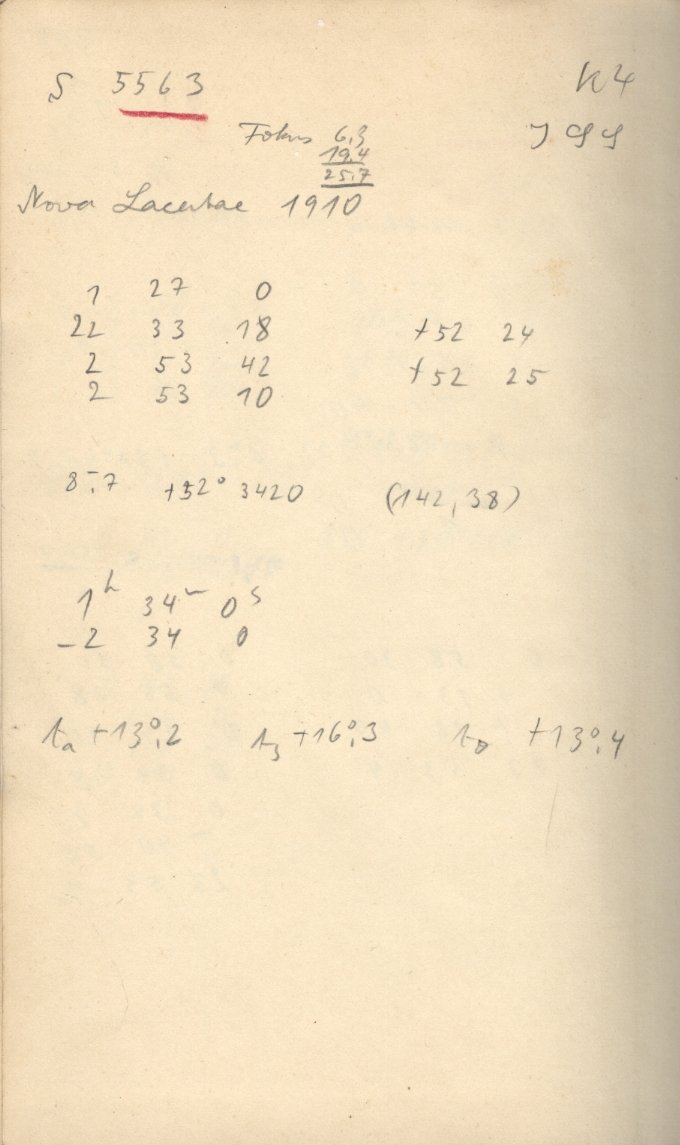 S 5563 K4
Fokus 6,3
19,4
25,7
Nova Lacertae 1910
1 27 0
22 33 18 +52 24
2 53 42 +52 25
2 53 10
8,7 +52° 3420 (142, 38)
1h 34m 0s
-2 34 0
ta +13°,2 +16°,3 +13°,4